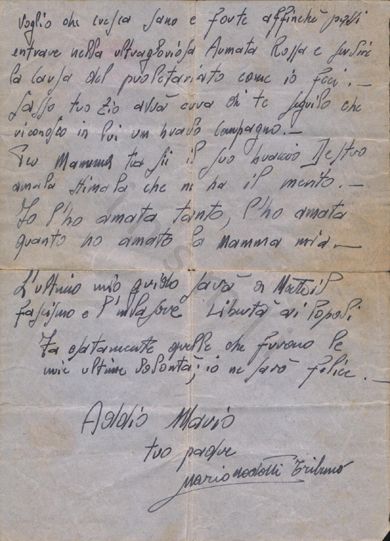 voglio che cresca sano e forte affinché possi
entrare nella ultragloriosa Armata Rossa e servire
la causa del proletariato come io feci. —
Lasso tuo zio avrà cura di te seguilo che
riconosco in lui un bravo compagno. —
Per Mamma tu sii il suo braccio destro
amala stimala che ne ha il merito. —
Io l'ho amata tanto, l'ho amata
quanto ho amato la Mamma mia —
L'ultimo mio grido sarà a Morte il
fascismo e Libertà ai Popoli
Fa esatamente quelle che furono le
mie ultime volontà; io ne sarò felice. —
Addio Mario
tuo padre
Mario Modotti Tribuno